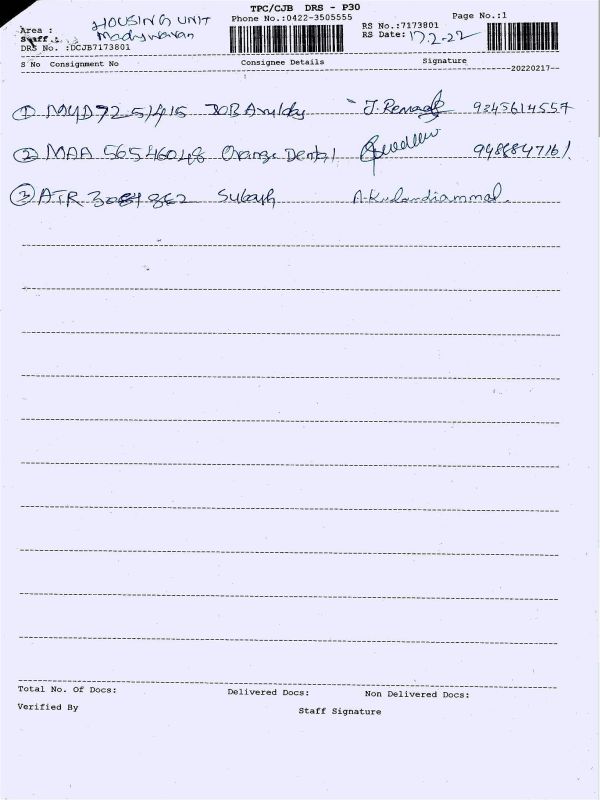 TPC/CJB DRS - P30
Phone No.:0422-3505555
Page No.:1
Area : HOUSING UNIT
Staff :
RS No.:7173801
RS Date: 17.2.22
DRS No. :DCJB7173801
S No Consignment No Consignee Details Signature
--20220217--
1 7251415
2 MAA 56546048 Orange Dental
3 Subash A. Kulandiammal.
Total No. Of Docs: Delivered Docs: Non Delivered Docs:
Verified By Staff Signature